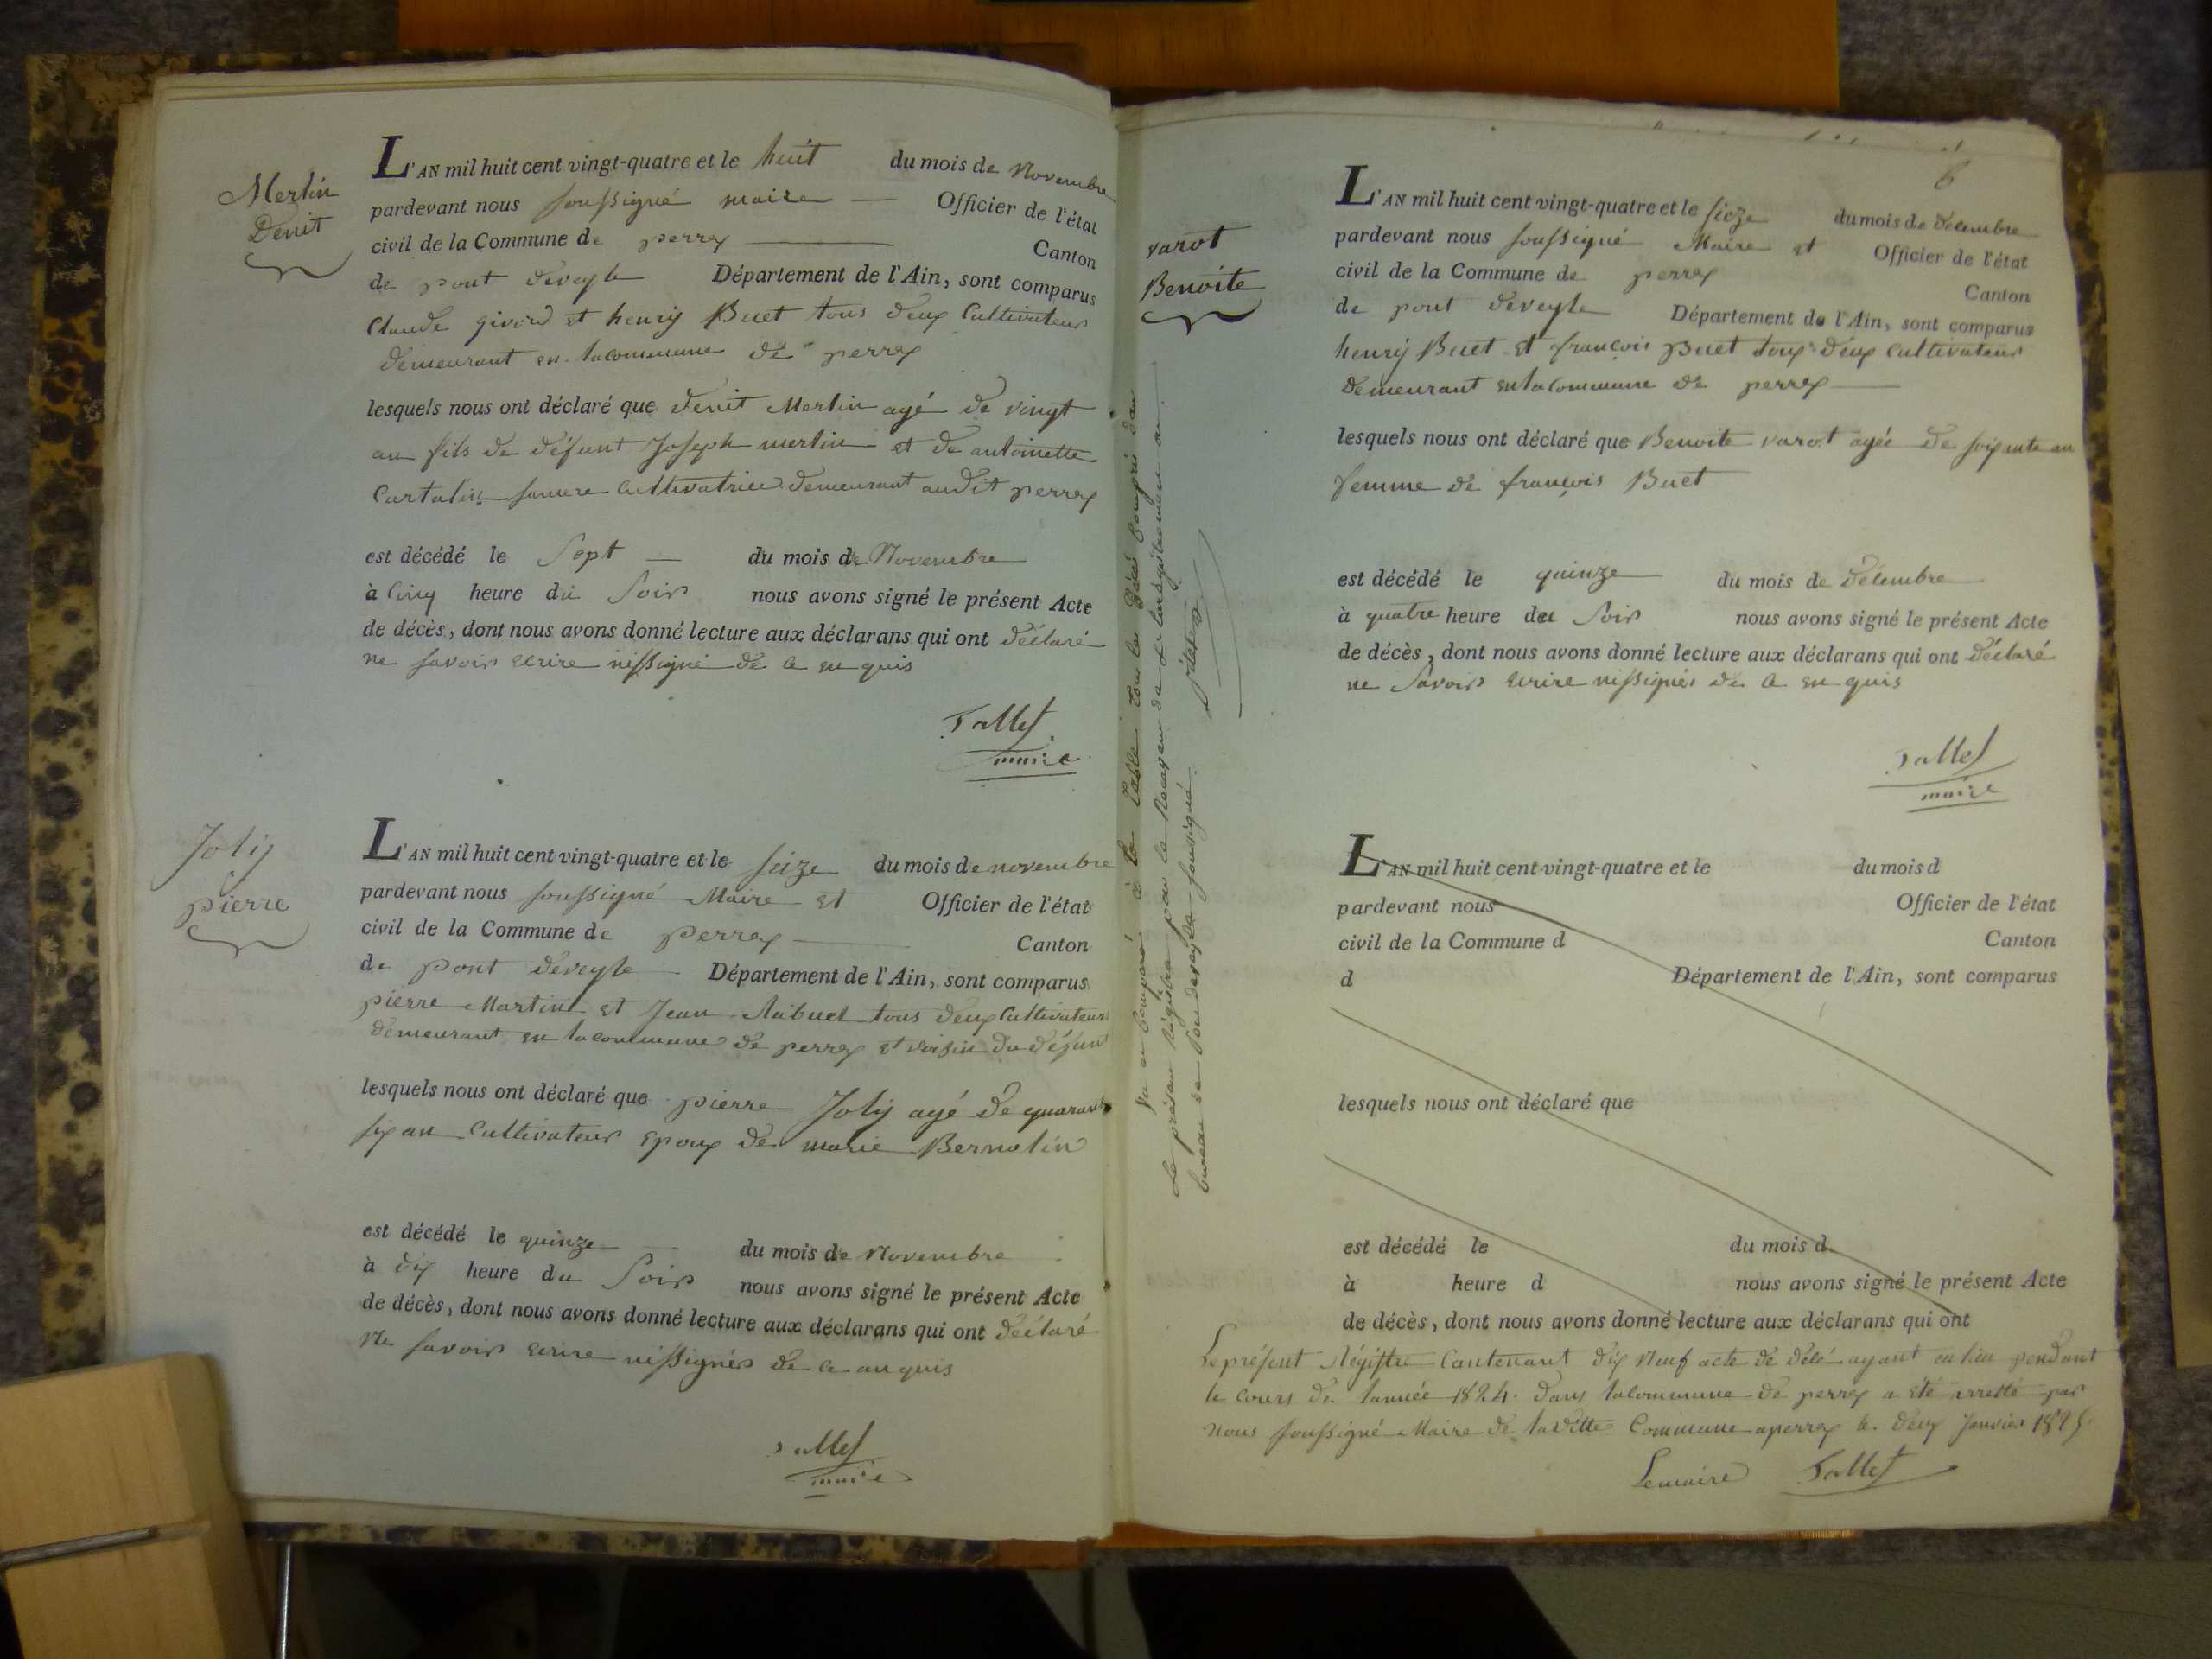 Merlin
Denit
L'AN mil huit cent vingt-quatre et le huit du mois de Novembre
pardevant nous soussigné maire Officier de l'état
civil de la Commune de perrex Canton
de pont deveyle Département de l'Ain, sont comparus
Claude givord et henrÿ Buet tous deux Cultivateur
demeurant en lacommune de perrex
lesquels nous ont déclaré que denit Merlin agé de vingt
an fils de défunt Joseph merlin et de antoinette
Curtalin samere Cultivatrice demeurant audit perrex
est décédé le Sept du mois de Novembre
à Cinq heure du Soir nous avons signé le présent Acte
de décès, dont nous avons donné lecture aux déclarans qui ont déclaré
ne savoir ecrire nissigné de ce en quis
Tallet
maire
Jolÿ
pierre
L'AN mil huit cent vingt-quatre et le seize du mois de novembre
pardevant nous soussigné Maire et Officier de l'état
civil de la Commune de perrex Canton
de pont deveyle Département de l'Ain, sont comparus
pierre Martin et Jean tous deux Cultivateur
demeurant en lacommune de perrex et voisin du défunt
lesquels nous ont déclaré que pierre Jolÿ agé de quarante
six an Cultivateur Epoux de marie Bernolin
est décédé le quinze du mois de Novembre
à dix heure du Soir nous avons signé le présent Acte
de décès, dont nous avons donné lecture aux déclarans qui ont déclaré
Ne savoir ecrire nissignér de ce an quis
Tallet
maire
6
varot
Benoite
L'AN mil huit cent vingt-quatre et le sieze du mois de décembre
pardevant nous soussigné Maire et Officier de l'état
civil de la Commune de perrex Canton
de pont deveyle Département de l'Ain, sont comparus
henrÿ Buet et françois Buet tous deux cultivateur
demeurant enlacommune de perrex
lesquels nous ont déclaré que Benoite varot agée de soixante an
femme de françois Buet
est décédé le quinze du mois de décembre
à quatre heure du Soir nous avons signé le présent Acte
de décès, dont nous avons donné lecture aux déclarans qui ont déclaré
ne Savoir ecrire nissignér de ce en quis
Tallet
maire
Vu et comparé à la table tous les décès compris dans
Le présent Régistre par le Receveur de L'enregistrement au
bureau de Pondeveyle soussigné.
L'AN mil huit cent vingt-quatre et le du mois d
pardevant nous Officier de l'état
civil de la Commune d Canton
d Département de l'Ain, sont comparus
lesquels nous ont déclaré que
est décédé le du mois d
à heure d nous avons signé le présent Acte
de décès, dont nous avons donné lecture aux déclarans qui ont
Le présent Régistre Contenant dix Neuf acte de décé ayant eu lieu pendant
le cours de lannée 1824 dans lacommune de perrex a été arretté par
Nous soussigné Maire de laditte Commune aperrex le deux Janvier 1825
Lemaire Tallet